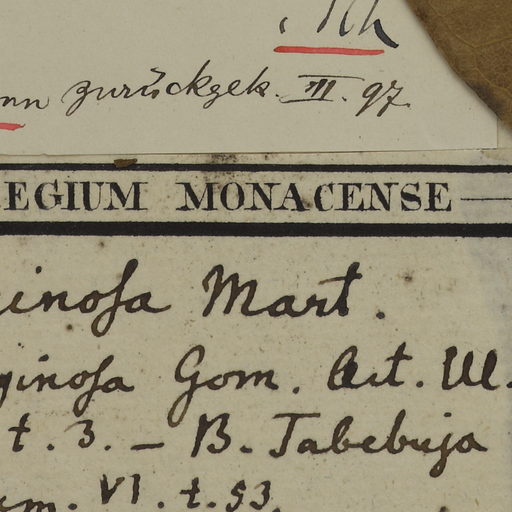 zurückgek. III. 97.
EGIUM MONACENSE
inosa Mart.
ginosa Gom. Act. Ul.
t. 3. — B. Tabebuja
m. VI. t. 53.